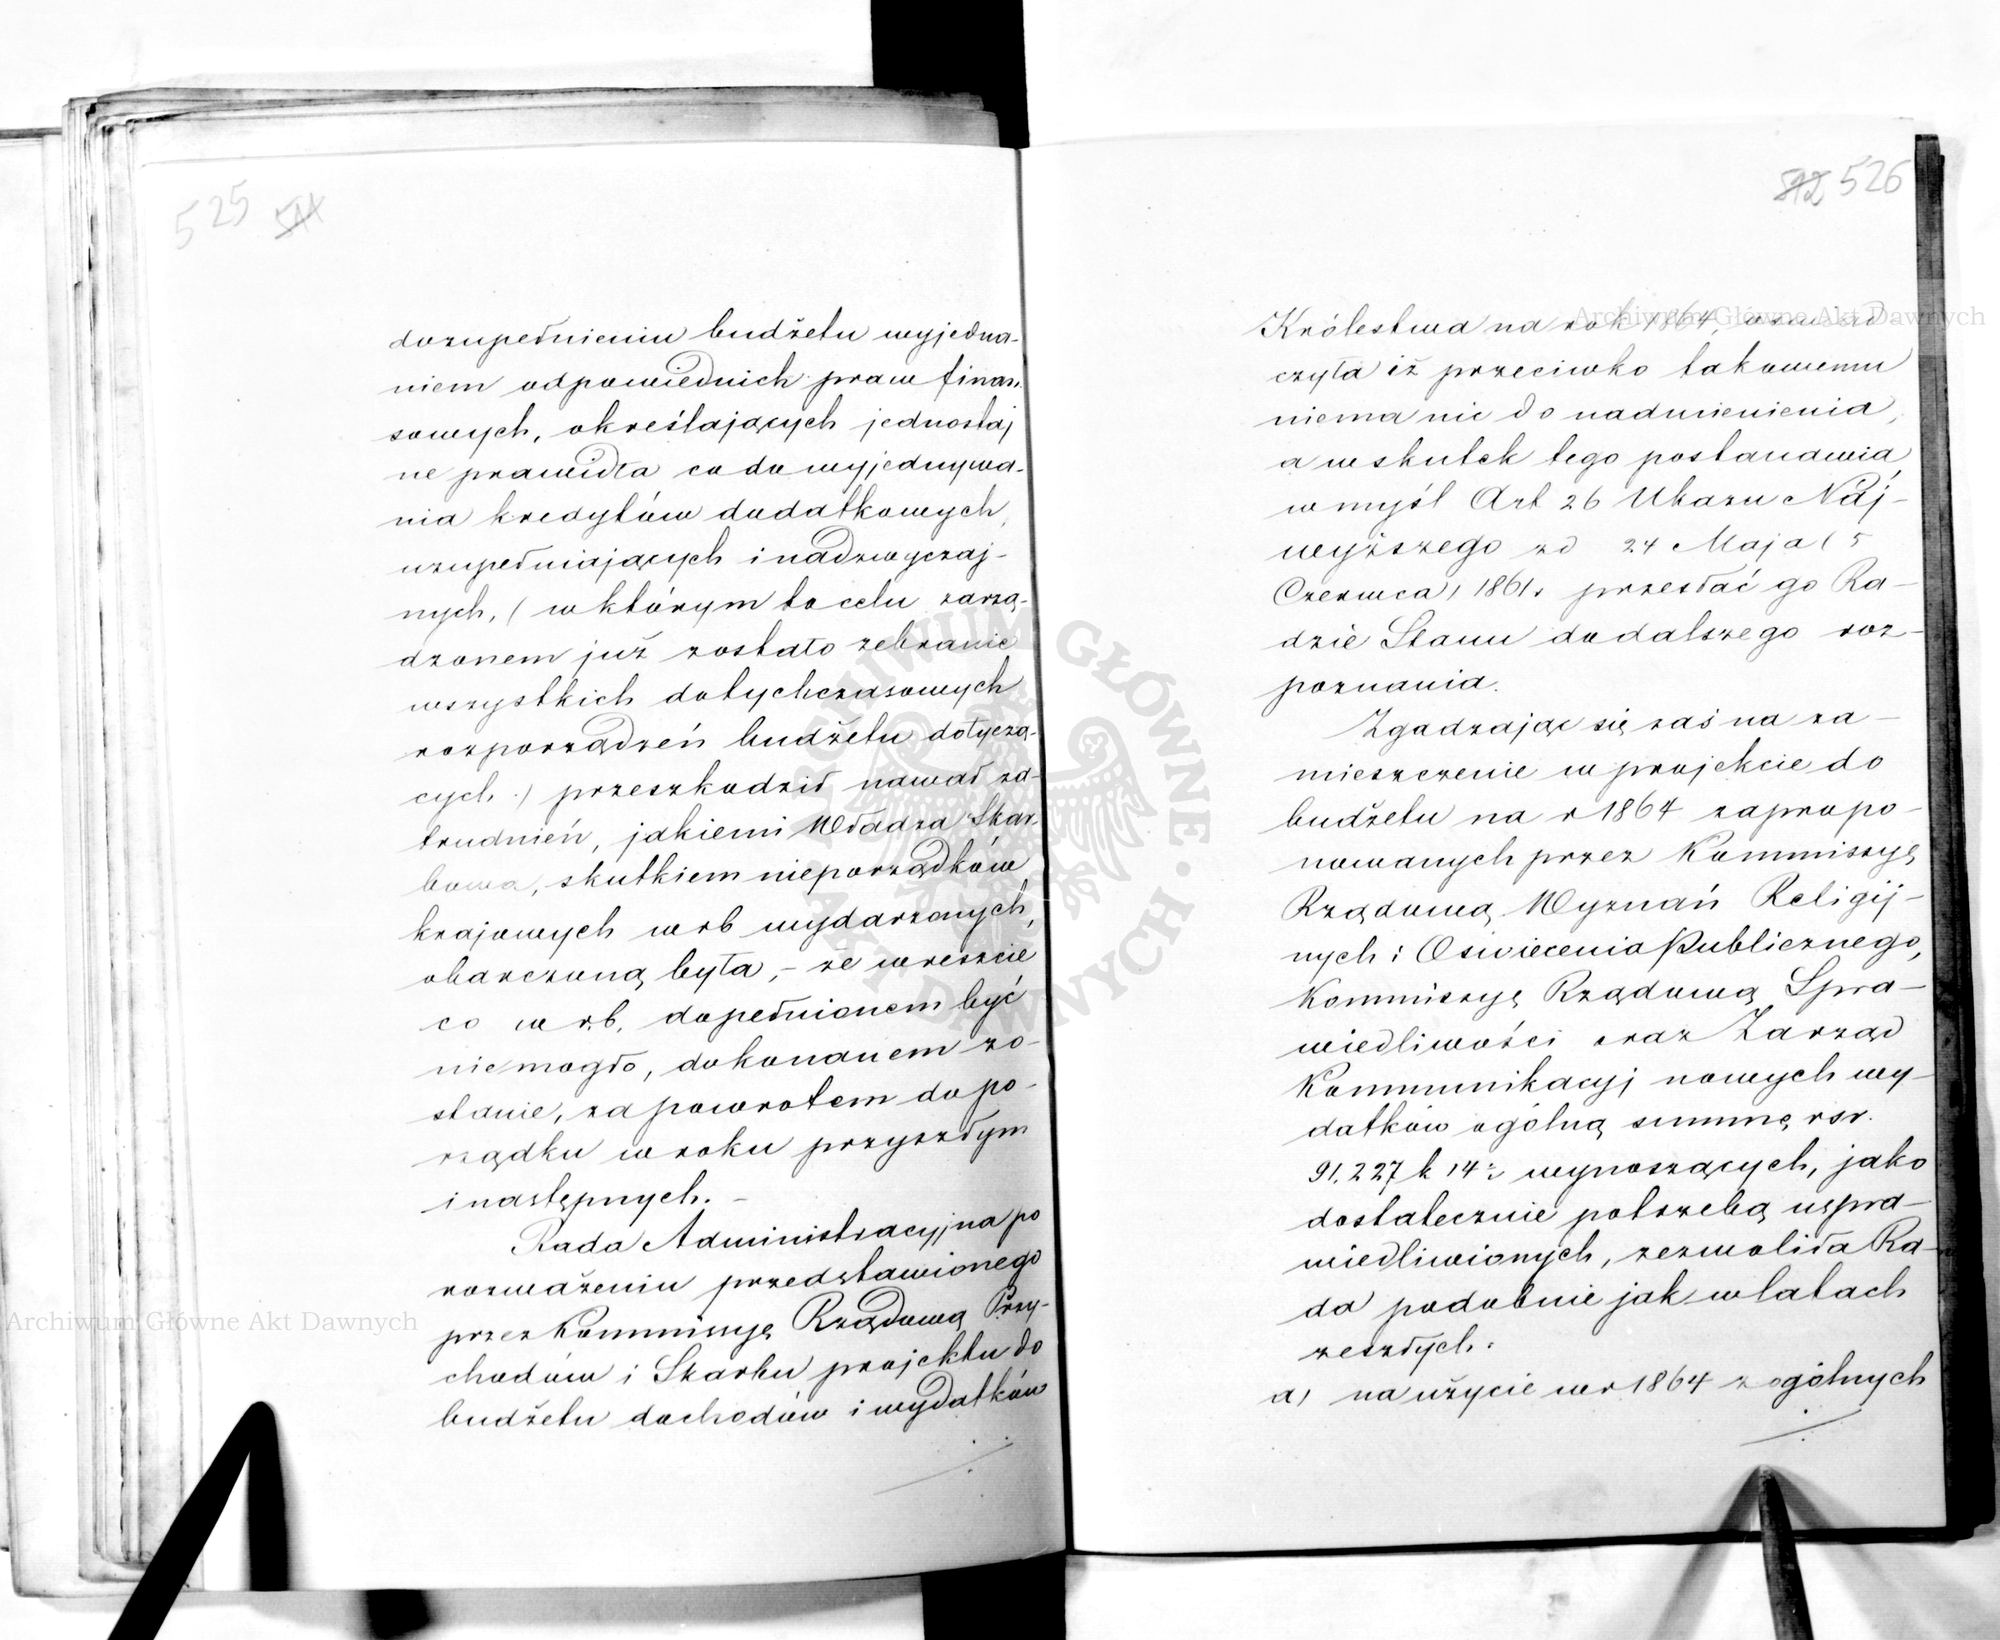 525 511
dozupełnieniu budżetu wyjedna-
niem odpowiednich praw finan-
sowych, określających jednostaj
ne prawidła co do wyjednywa-
nia kredytów dodatkowych,
uzupełniających i nadzwyczaj-
nych, (w którym to celu zarzą-
dzonem już zostało zebranie
wszystkich dotychczasowych
rozporządzeń budżetu dotyczą-
cych.) przeszkodził nawał za-
trudnień, jakiemi Władza Skar-
bowa, skutkiem nieporządków
krajowych w rb wydarzonych,
obarczoną była, – że wreszcie
co w r.b. dopełnionem być
niemogło, dokonanem zo-
stanie, za powrotem do po-
rządku w roku przyszłym
i następnych. –
Rada Administracyjna po
rozważeniu przedstawionego
przez Kommissyę Rządową Przy-
chodów i Skarbu projektu do
budżetu dochodów i wydatków
512 526
Królestwa na rok 1864, oświad
czyła iż przeciwko takowemu
niema nic do nadmienienia,
a wskutek tego postanawia,
w myśl Art 26 Ukazu Naj-
wyższego zd 24 Maja (5
Czerwca) 1861 r przesłać go Ra-
dzie Stanu do dalszego roz-
poznania.
Zgadzając się zaś na za-
mieszczenie w projekcie do
budżetu na r 1864 zapropo-
nowanych przez Kommissyę
Rządową Wyznań Religij-
nych i Oświecenia Publicznego,
Kommissyę Rządową Spra-
wiedliwości oraz Zarząd
Kommunikacyj nowych wy-
datków ogólną summę rsr.
91.227 k 14 ½ wynoszących, jako
dostatecznie potrzebą uspra-
wiedliwionych, zezwoliła Ra-
da podobnie jak w latach
zeszłych:
a) na użycie w r 1864 z ogólnych
Archiwum Główne Akt Dawnych
Archiwum Główne Akt Dawnych
ARCHIWUM GŁÓWNE AKT DAWNYCH